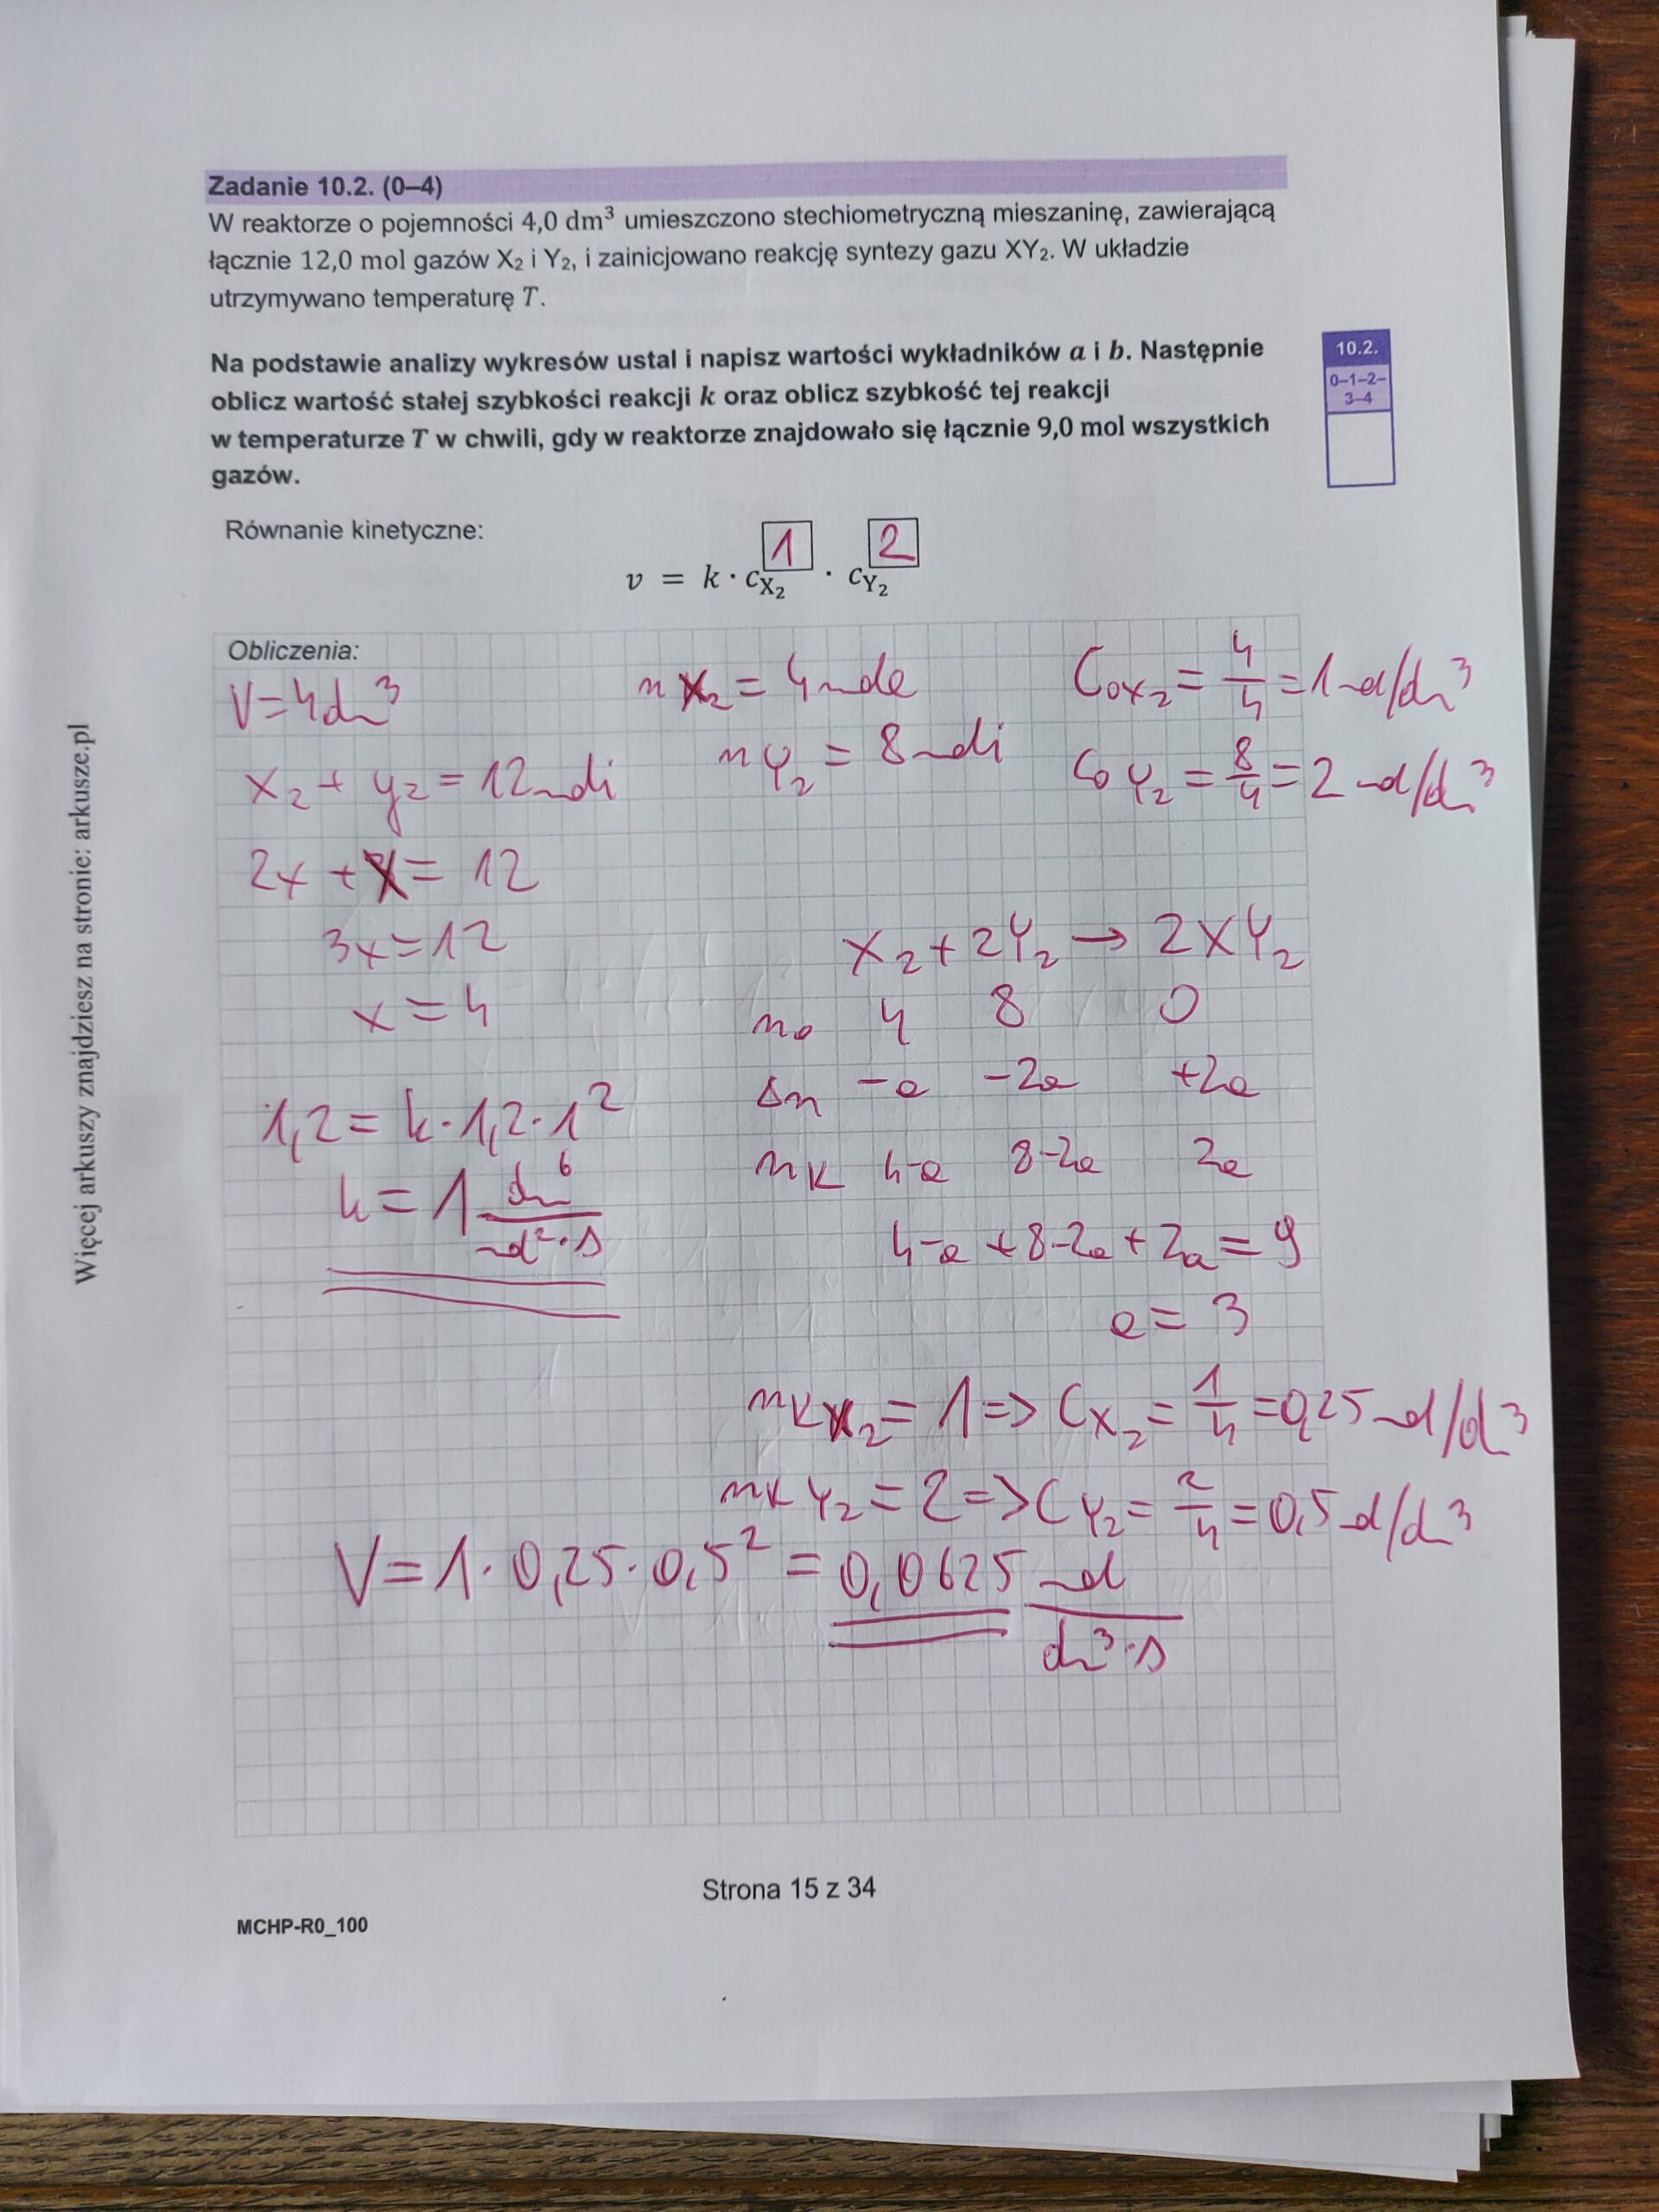 Zadanie 10.2. (0–4)
W reaktorze o pojemności 4,0 dm³ umieszczono stechiometryczną mieszaninę, zawierającą
łącznie 12,0 mol gazów X₂ i Y₂, i zainicjowano reakcję syntezy gazu XY₂. W układzie
utrzymywano temperaturę T.
Na podstawie analizy wykresów ustal i napisz wartości wykładników a i b. Następnie
oblicz wartość stałej szybkości reakcji k oraz oblicz szybkość tej reakcji
w temperaturze T w chwili, gdy w reaktorze znajdowało się łącznie 9,0 mol wszystkich
gazów.
10.2.
0–1–2–
3–4
Równanie kinetyczne:
1 2
v = k · c_X₂ · c_Y₂
Obliczenia:
V=4dm³
x₂ + y₂ = 12moli
2x + x = 12
3x = 12
x = 4
n x₂ = 4mole
n Y₂ = 8moli
C₀x₂ = 4/4 = 1mol/dm³
C₀ Y₂ = 8/4 = 2 mol/dm³
X₂ + 2Y₂ → 2XY₂
n₀ 4 8 0
Δn -a -2a +2a
nK 4-a 8-2a 2a
4-a + 8-2a + 2a = 9
a = 3
1,2 = k·1,2·1²
k = 1 dm⁶/mol²·s
nKx₂ = 1 => Cx₂ = 1/4 = 0,25 mol/dm³
nK Y₂ = 2 => C Y₂ = 2/4 = 0,5 mol/dm³
V = 1·0,25·0,5² = 0,0625 mol/dm³·s
Strona 15 z 34
MCHP-R0_100
Więcej arkuszy znajdziesz na stronie: arkusze.pl